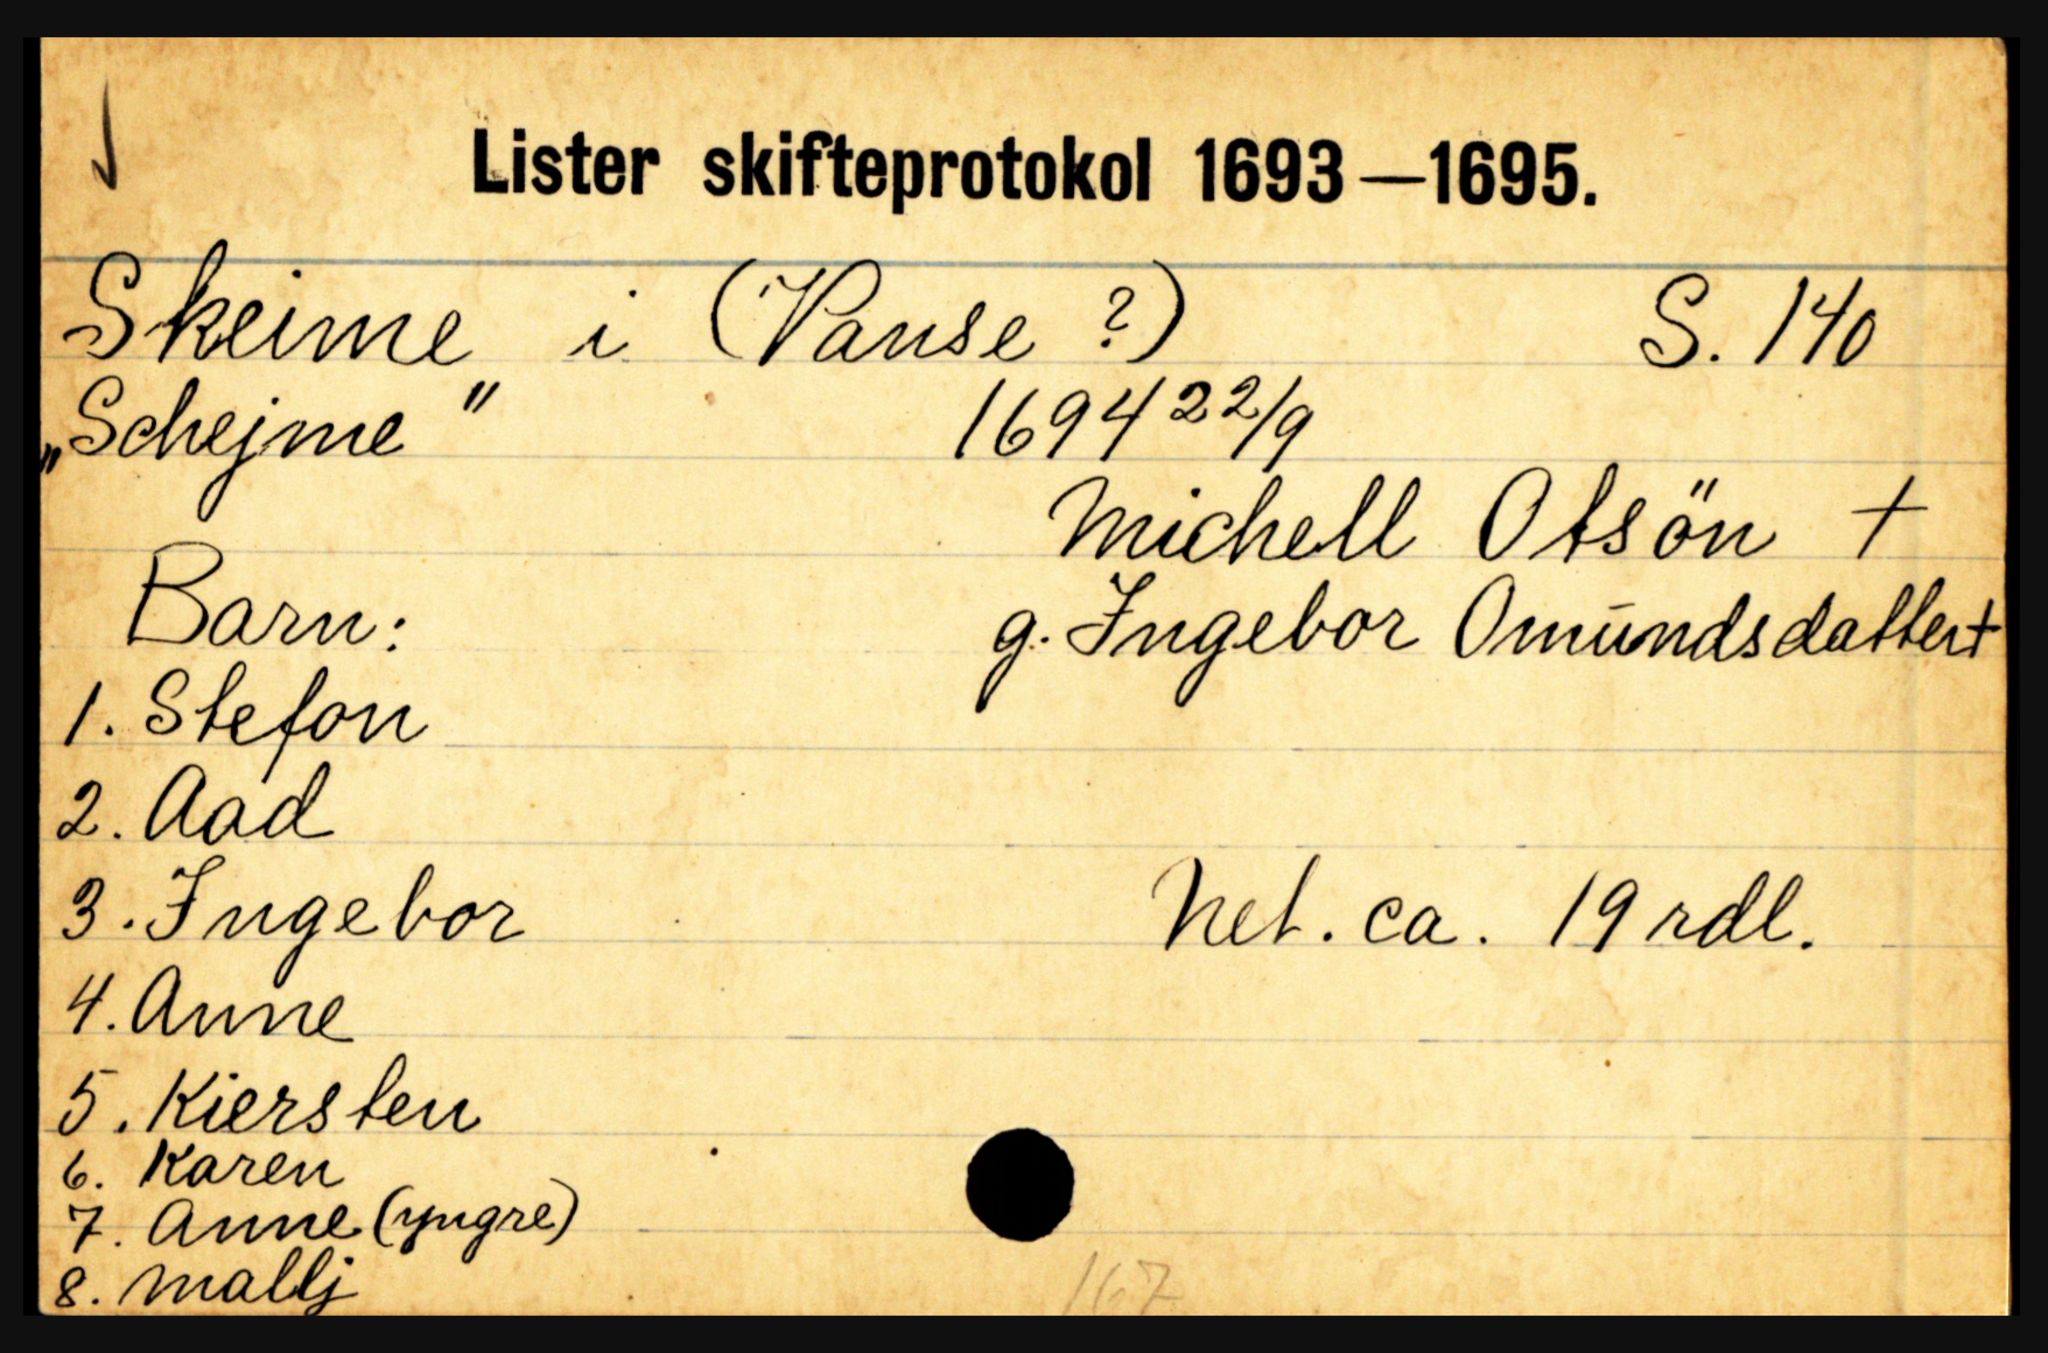 Lister skifteprotokol 1693—1695.
Skeime i (Vanse ?) S. 140
„Schejme" 1694 22/9
Michell Otsön +
Barn: g. Ingebor Omūndsdatter+
1. Stefon
2. Aad
3. Ingebor Net. ca. 19 rdl.
4. Anne
5. Kiersten
6. Karen
7. Anne (yngre)
8. Mallj
167